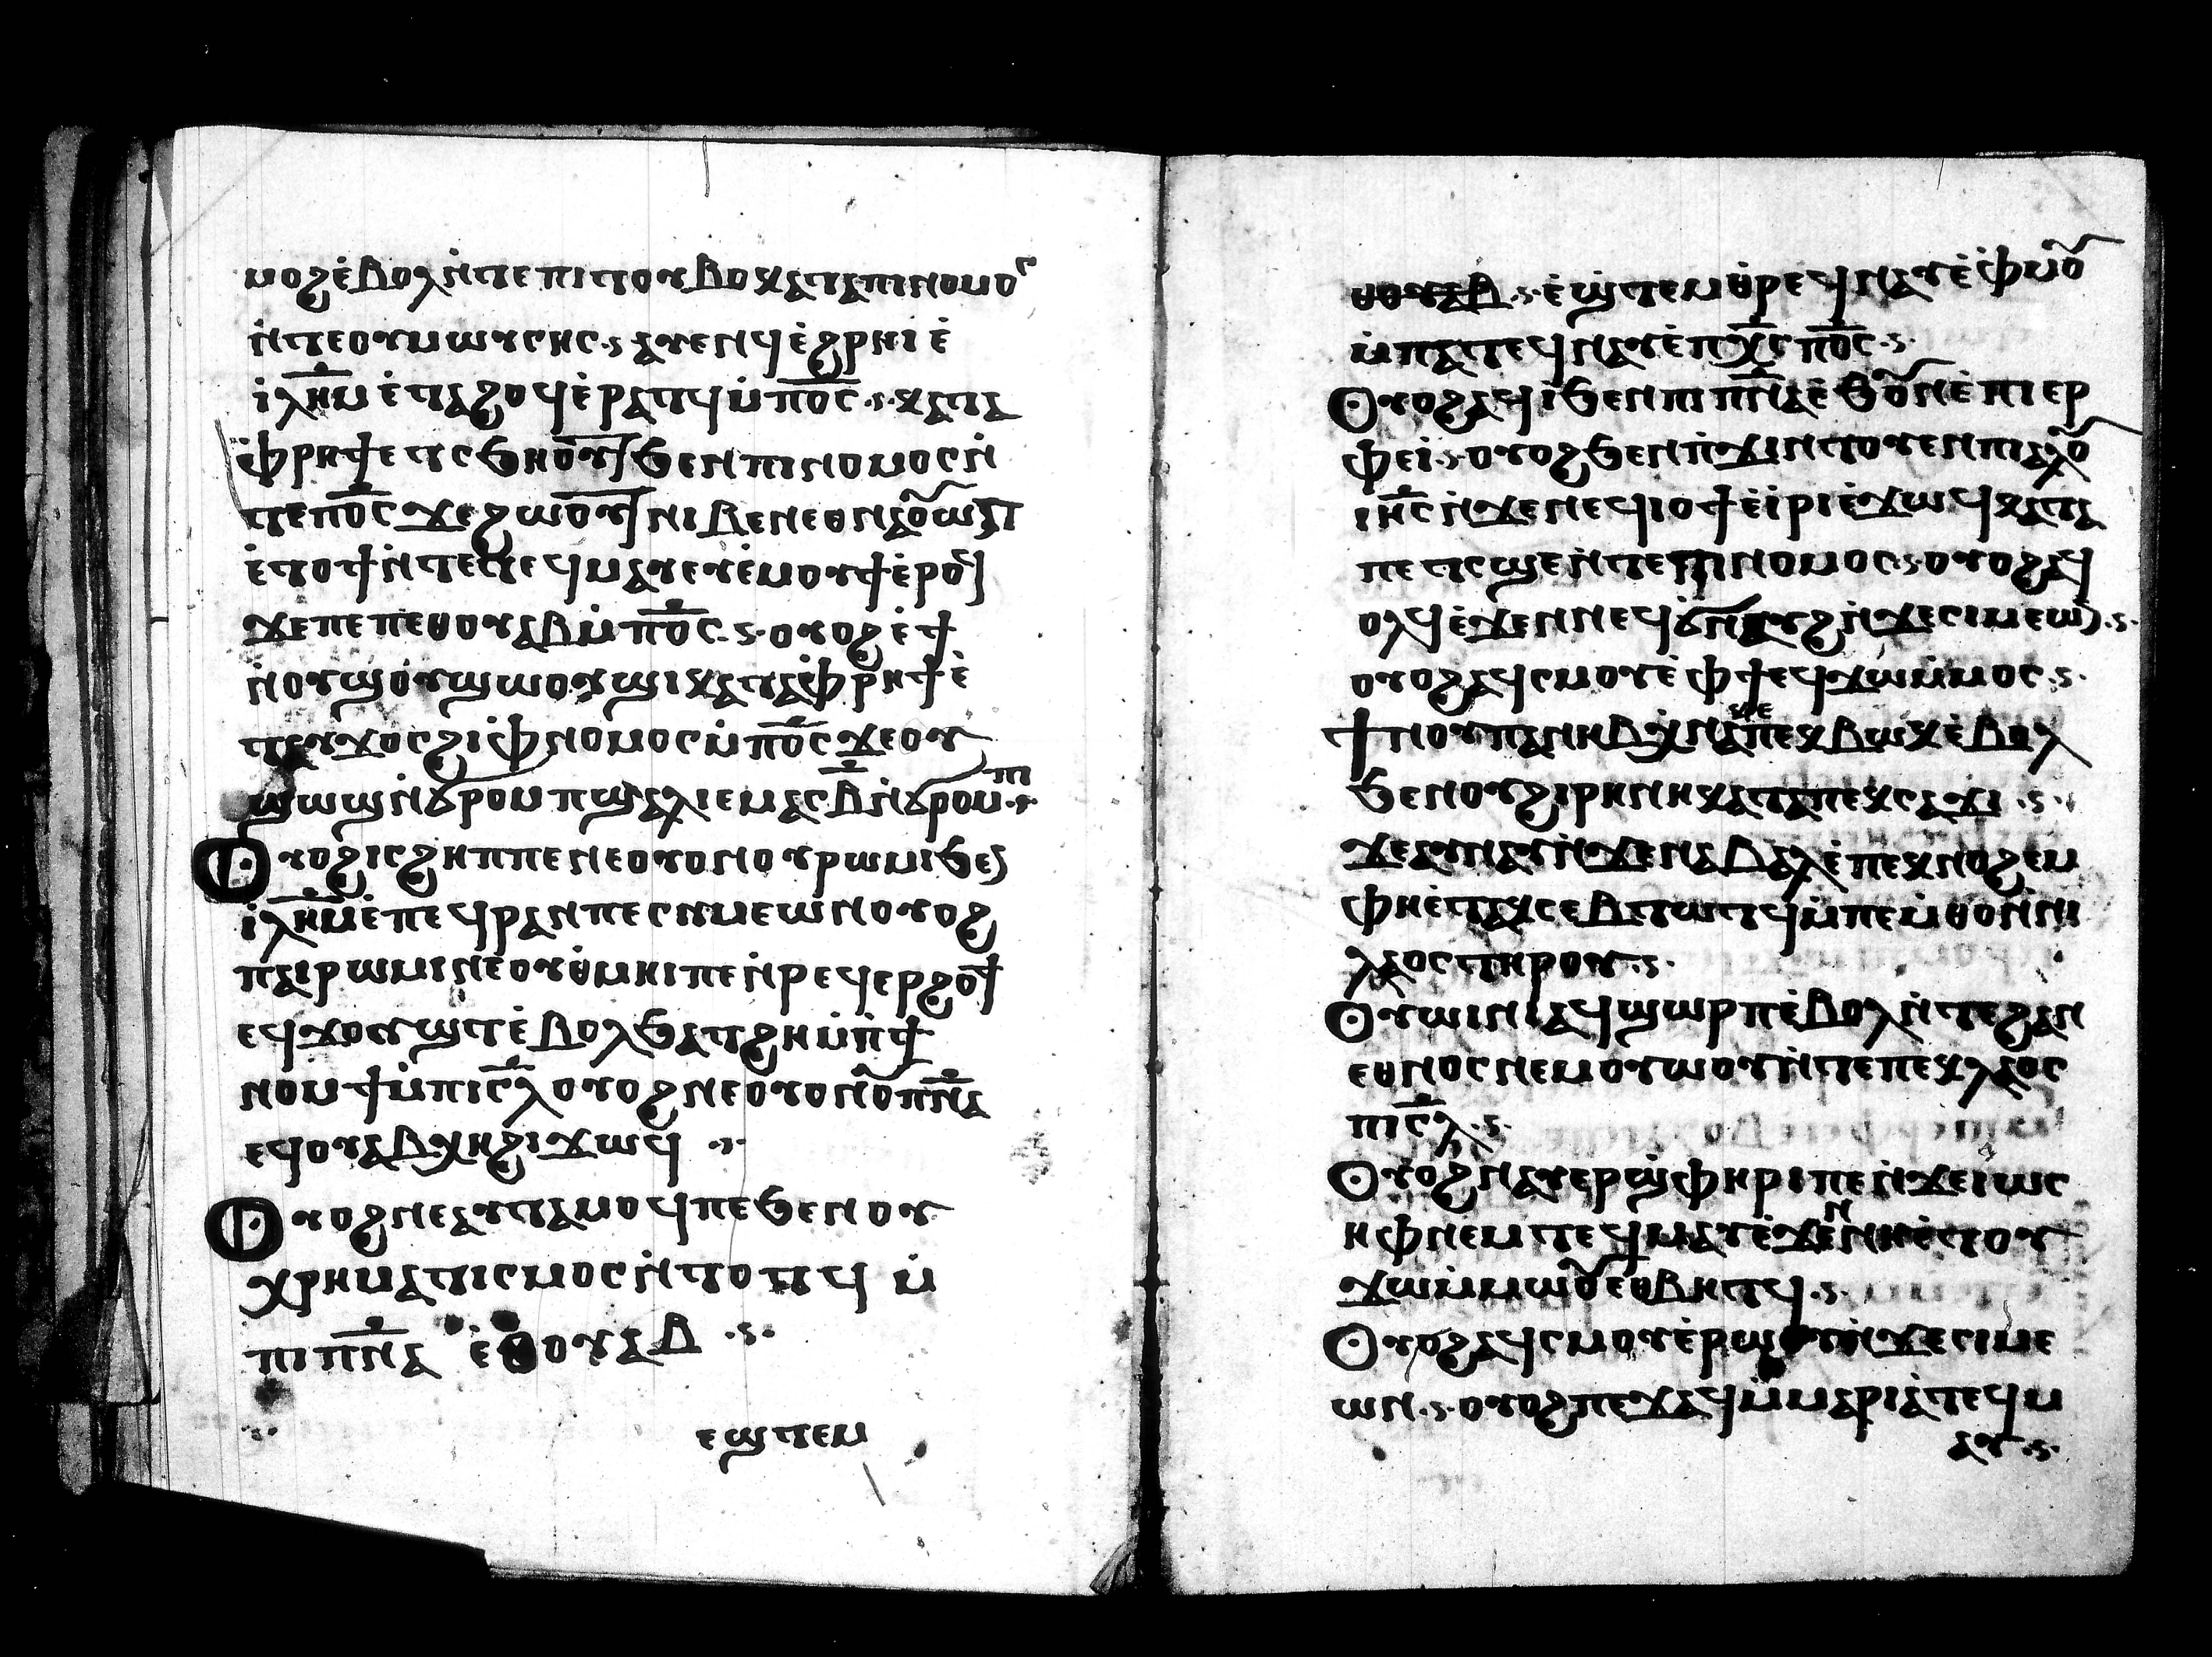 ⲙⲟϩ ⲉ̀ⲃⲟⲗ ⲛ̀ⲧⲉ ⲡⲓⲧⲟⲩⲃⲟ ⲕⲁⲧⲁ ⲡⲓⲛⲟⲙⲟⲥ
ⲛ̀ⲧⲉ ⲟⲩⲙⲱⲩⲥⲏⲥ ·ⲋ· ⲁⲩⲉⲛϥ ⲉ̀ϩⲣⲏⲓ ⲉ̀
ⲓ̀ⲗ̅ⲏ̅ⲙ ⲉ̀ⲧⲁϩⲟϥ ⲉ̀ⲣⲁⲧϥ ⲙ̀ⲡ̅ⲟ̅ⲥ̅ ·ⲋ· ⲕⲁⲧⲁ
ⲫ̀ⲣⲏϯ ⲉⲧⲥϧⲏⲟⲩⲧ ϧⲉⲛ ⲡⲓⲛⲟⲙⲟⲥ ⲛ̀
ⲧⲉ ⲡ̅ⲟ̅ⲥ̅ ϫⲉ ϩⲱⲟⲩⲧ ⲛⲓⲃⲉⲛ ⲉⲑⲛⲁⲟⲩⲱⲛ
ⲉ̀ⲧⲟϯ ⲛ̀ⲧⲉⲧⲉϥⲙⲁⲩ ⲉⲩⲉ̀ⲙⲟⲩϯ ⲉ̀ⲣⲟϥ
ϫⲉ ⲡⲉ ⲡⲉⲑⲟⲩⲁⲃ ⲙ̀ⲡ̅ⲟ̅ⲥ̅ ·ⲋ· ⲟⲩⲟϩ ⲉ̀ϯ
ⲛ̀ⲟⲩϣⲟⲩϣⲱⲟⲩϣⲓ ⲕⲁⲧⲁ ⲫ̀ⲣⲏϯ ⲉ̀
ⲧⲁⲩϫⲟⲥ ϩⲓ ⲫ̀ⲛⲟⲙⲟⲥ ⲙ̀ⲡ̅ⲟ̅ⲥ̅ ϫⲉ ⲟⲩ
ϣⲱϣ ⲛ̀ϭⲣⲟⲙⲡϣⲁⲗ ⲓⲉ ⲙⲁⲥ ⲃ̅ ⲛ̀ϭⲣⲟⲙⲡⲓ
Ⲟⲩⲟϩ ⲓⲥ ϩⲏⲡⲡⲉ ⲛⲉ ⲟⲩⲟⲛ ⲟⲩⲣⲱⲙⲓ ϧⲉⲛ
ⲓ̀ⲗ̅ⲏ̅ⲙ ⲉ̀ⲡⲉϥⲣⲁⲛ ⲡⲉ ⲥⲩⲙⲉⲱⲛ ⲟⲩⲟϩ
ⲡⲁⲓⲣⲱⲙⲓ ⲛⲉ ⲟⲩⲑ̀ⲙⲏⲓ ⲡⲉ ⲛ̀ⲣⲉϥⲉⲣϩⲟϯ
ⲉϥϫⲟⲩϣⲧ ⲉ̀ⲃⲟⲗ ϧⲁⲧϩⲏ ⲙ̀ⲡ̀ϯ
ⲛⲟⲙϯ ⲙ̀ⲡⲓⲥ̅ⲗ̅ ⲟⲩⲟϩ ⲛⲉ ⲟⲩⲟⲛ ⲟⲩⲡ̅ⲛ̅ⲁ̅
ⲉϥⲟⲩⲁⲃ ⲭⲏ ϩⲓϫⲱϥ ·ⲋ·
Ⲟⲩⲟϩ ⲛⲉⲁⲩⲧⲁⲙⲟϥ ⲡⲉ ϧⲉⲛ ⲟⲩ
ⲭⲣⲏⲙⲁⲧⲓⲥⲙⲟⲥ ⲛ̀ⲧⲟⲧϥ ⲙ̀
ⲡⲓⲡ̅ⲛ̅ⲁ̅ ⲉⲑⲟⲩⲁⲃ ·ⲋ·
ⲉϣⲧⲉⲙ
ⲉⲑⲟⲩⲁⲃ ·ⲋ· ⲉ̀ϣⲧⲉⲙⲑ̀ⲣⲉϥⲛⲁⲩ ⲉ̀ⲫ̀ⲙⲟⲩ
ⲙ̀ⲡⲁⲧⲉϥⲛⲁⲩ ⲉ̀ⲡⲭ̅ⲥ̅ ⲡ̅ⲟ̅ⲥ̅ ·ⲋ·
Ⲟⲩⲟϩ ⲁϥⲓ̀ ϧⲉⲛ ⲡⲓⲡ̅ⲛ̅ⲁ̅ ⲉ̀ϧⲟⲩⲛ ⲉ̀ⲡⲓⲉⲣ
ⲫⲉⲓ ·ⲋ· ⲟⲩⲟϩ ϧⲉⲛ ⲡ̀ϫⲓⲛⲧⲟⲩⲉⲛ ⲡⲓⲁⲗⲟⲩ
ⲓ̅ⲏ̅ⲥ̅ ⲛ̀ϫⲉ ⲛⲉϥⲓⲟϯ ⲉ̀ⲓ̀ⲣⲓ ⲉ̀ϫⲱϥ ⲕⲁⲧⲁ
ⲡⲉⲧⲥϣⲉ ⲛ̀ⲧⲉ ⲡⲓⲛⲟⲙⲟⲥ ·ⲋ· ⲟⲩⲟϩ ⲁϥ
ⲟⲗϥ ⲉ̀ϫⲉⲛ ⲛⲉϥϭⲛⲁⲩϩ ⲛ̀ϫⲉ ⲥⲓⲙⲉⲱⲛ ·ⲋ·
ⲟⲩⲟϩ ⲁϥⲥⲙⲟⲩ ⲉ̀ⲫϯ ⲉϥϫⲱ ⲙ̀ⲙⲟⲥ ·ⲋ·
Ϯⲛⲟⲩ ⲡⲁⲛⲏⲃ ⲭ̀ⲛⲁⲭⲉ ⲡⲉⲕⲃⲱⲕ ⲉ̀ⲃⲟⲗ
ϧⲉⲛ ⲟⲩϩⲓⲣⲏⲛⲏ ⲕⲁⲧⲁ ⲡⲉⲕⲥⲁϫⲓ ·ⲋ·
ϫⲉ ⲁⲩⲛⲁⲩ ⲛ̀ϫⲉ ⲛⲁⲃⲁⲗ ⲉ̀ⲡⲉⲕⲛⲟϩⲉⲙ
ⲫⲏ ⲉ̀ⲧⲁⲕⲥⲉⲃⲧⲱⲧϥ ⲙ̀ⲡⲉⲙ̀ⲑⲟ ⲛ̀ⲛⲓ
ⲗⲁⲟⲥ ⲧⲏⲣⲟⲩ ·ⲋ·
Ⲟⲩⲱⲓⲛⲓ ⲁϥϣⲱⲣⲡ ⲉ̀ⲃⲟⲗ ⲛ̀ⲧⲉ ϩⲁⲛ
ⲉⲑⲛⲟⲥ ⲛⲉⲙ ⲟⲩⲱⲟⲩ ⲛ̀ⲧⲉ ⲡⲉⲕⲗⲁⲟⲥ
ⲡⲓⲥ̅ⲗ̅ ·ⲋ·
Ⲟⲩⲟϩ ⲛⲁⲩⲉⲣϣ̀ⲫⲏⲣⲓ ⲡⲉ ⲛ̀ϫⲉ ⲓⲱⲥ
ⲏⲫ ⲛⲉⲙ ⲧⲉϥⲙⲁⲩ ⲉ̀ϫⲉⲛ ⲛⲏ ⲉ̀ⲧⲟⲩ
ϫⲱ ⲙ̀ⲙⲱⲟⲩ ⲉⲑⲃⲏⲧϥ ·ⲋ·
Ⲟⲩⲟϩ ⲁϥⲥⲙⲟⲩ ⲉ̀ⲣⲱⲟⲩ ⲛ̀ϫⲉ ⲥⲓⲙⲉ
ⲱⲛ ·ⲋ· ⲟⲩⲟϩ ⲡⲉϫⲁϥ ⲙ̀ⲙⲁⲣⲓⲁ ⲧⲉϥⲙ
ⲁⲩ ·ⲋ·